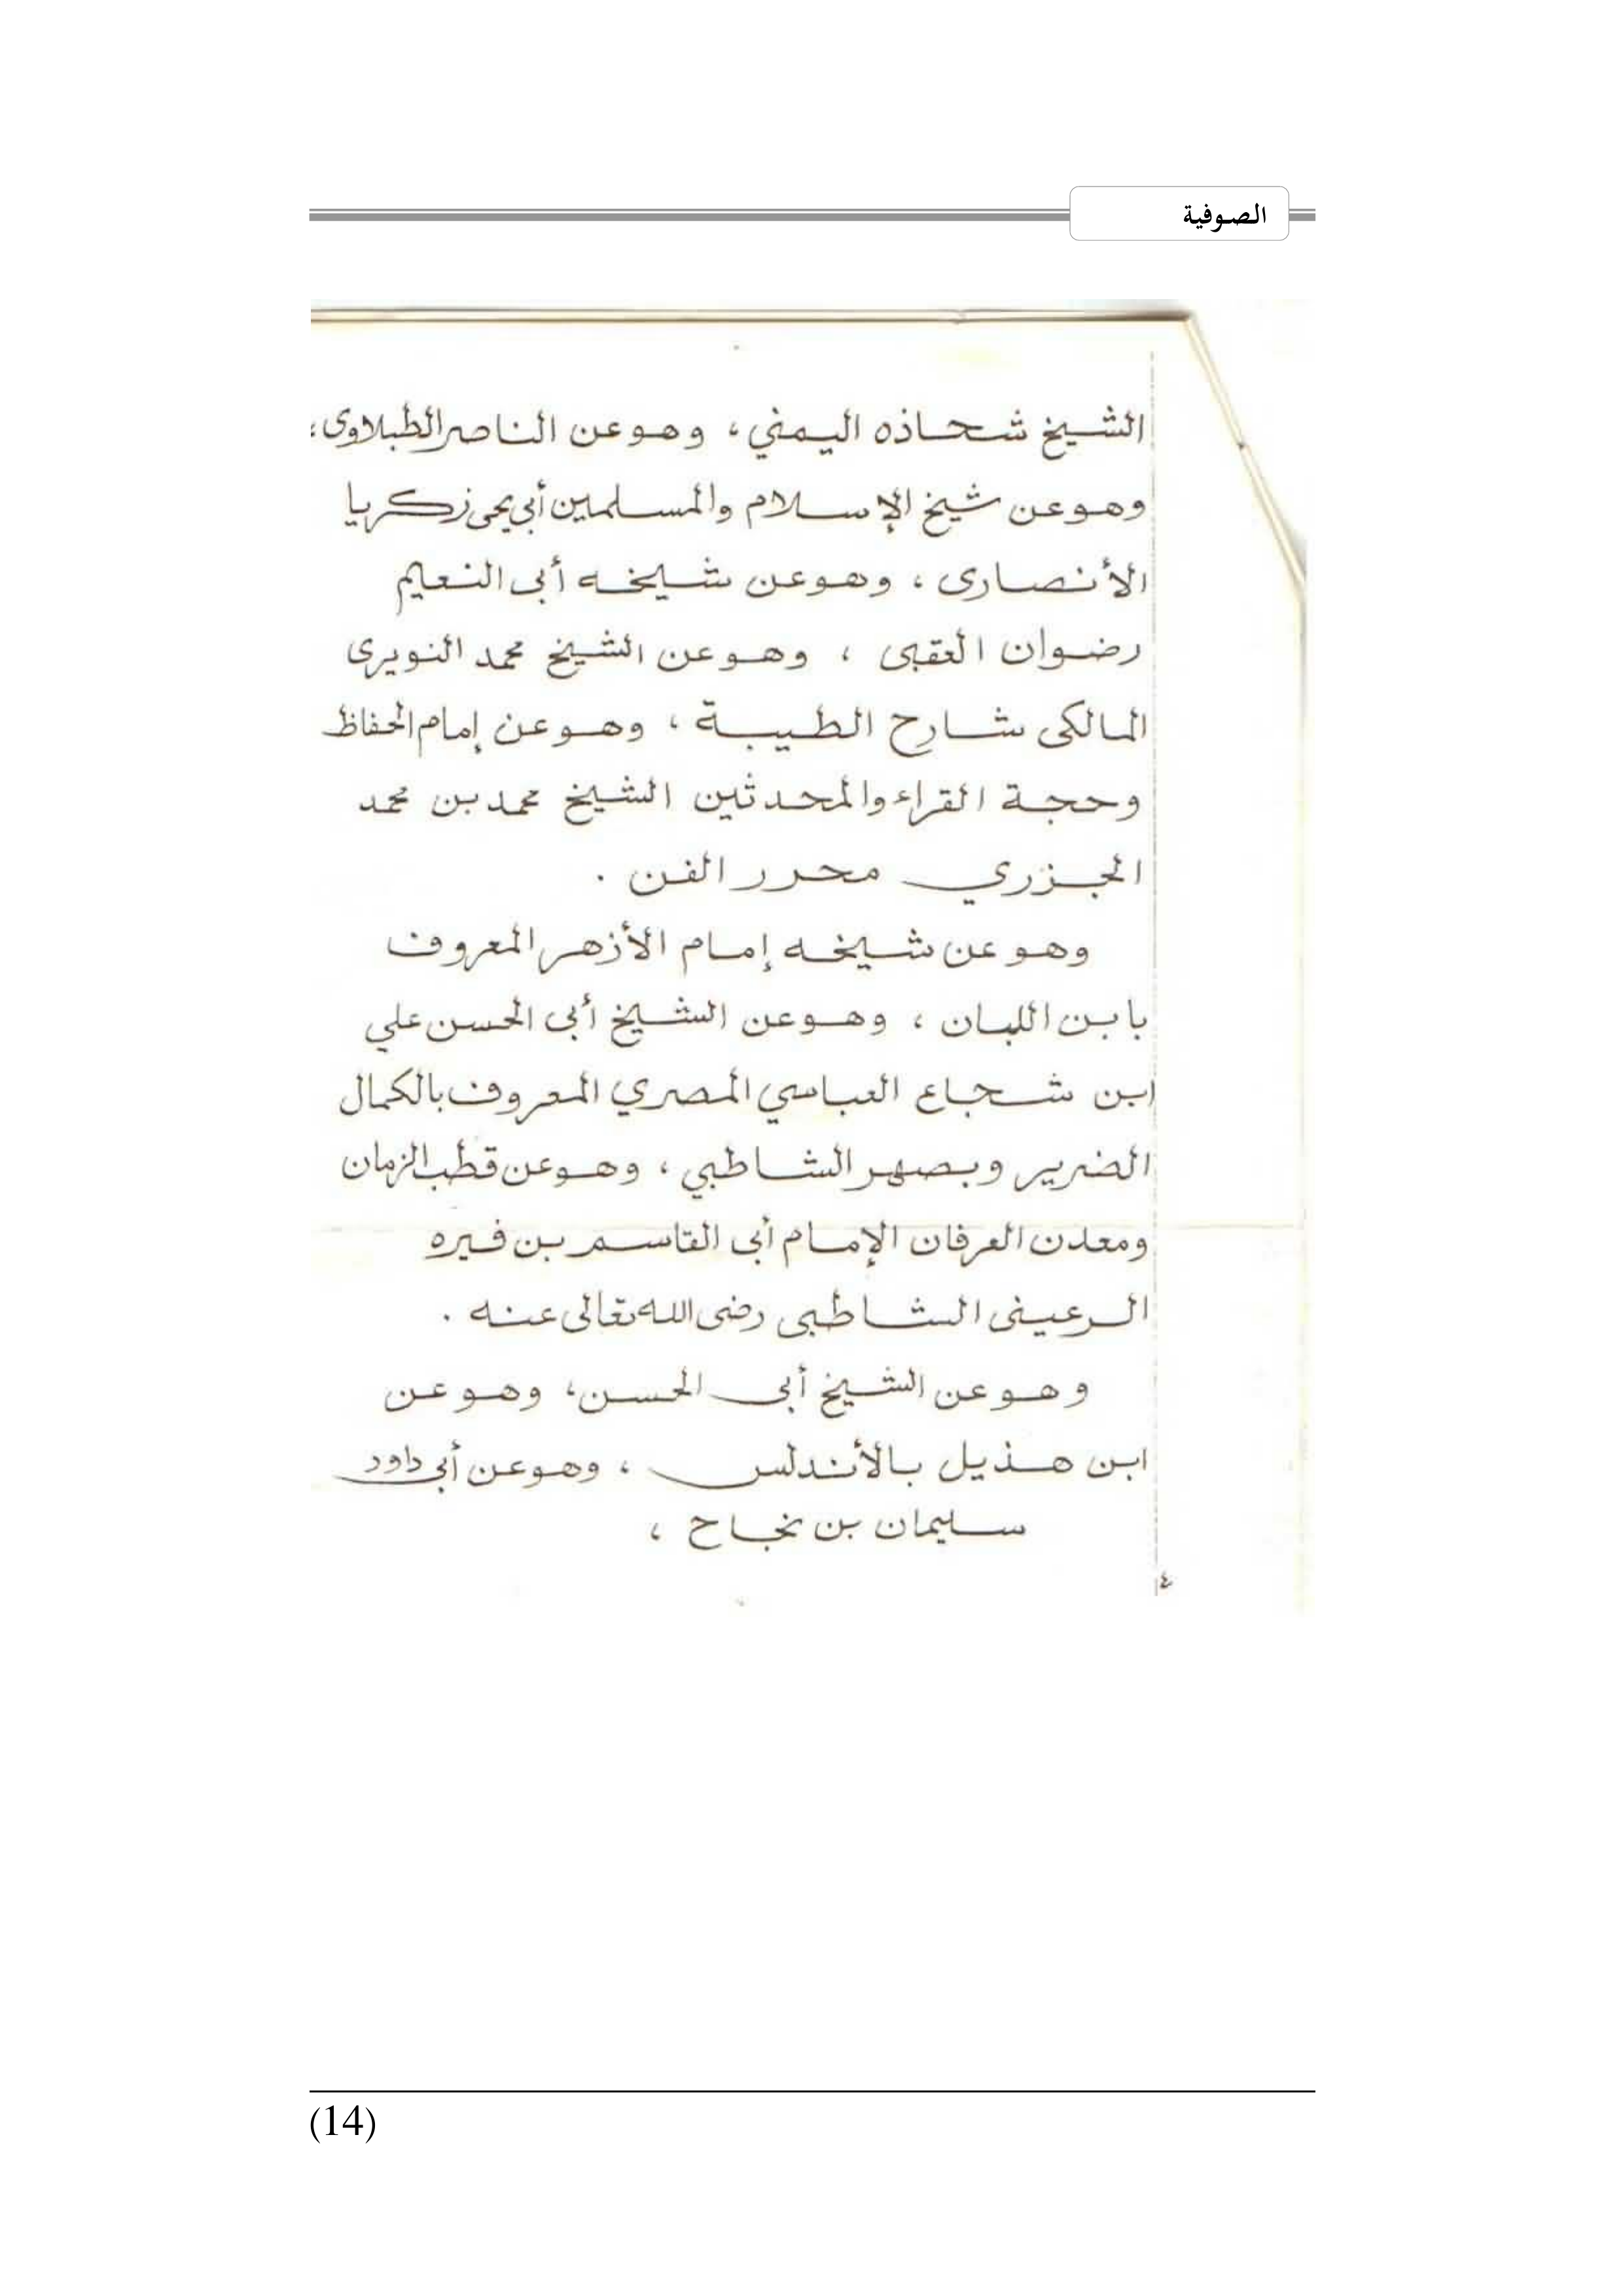 الصوفية
الشيخ شحاذه اليمني ، وهو عن الناصر الطبلاوى ،
وهو عن شيخ الإسلام والمسلمين أبي يحى زكريا
الأنصارى ، وهو عن شيخه أبى النعيم
رضوان العقبى ، وهو عن الشيخ محمد النويرى
المالكى شارح الطيبة ، وهو عن إمام الحفاظ
وحجة القراء والمحدثين الشيخ محمد بن محمد
الجزري محرر الفن .
وهو عن شيخه إمام الأزهر المعروف
بابن اللبان ، وهو عن الشيخ أبى الحسن علي
ابن شجاع العباسي المصري المعروف بالكمال
الضرير وبصهر الشاطبي ، وهو عن قطب الزمان
ومعدن العرفان الإمام أبى القاسم بن فيره
الرعينى الشاطبى رضى الله تعالى عنه .
وهو عن الشيخ أبى الحسن ، وهو عن
ابن هذيل بالأندلس ، وهو عن أبي داود
سليمان بن نجاح ،
٤
(14)